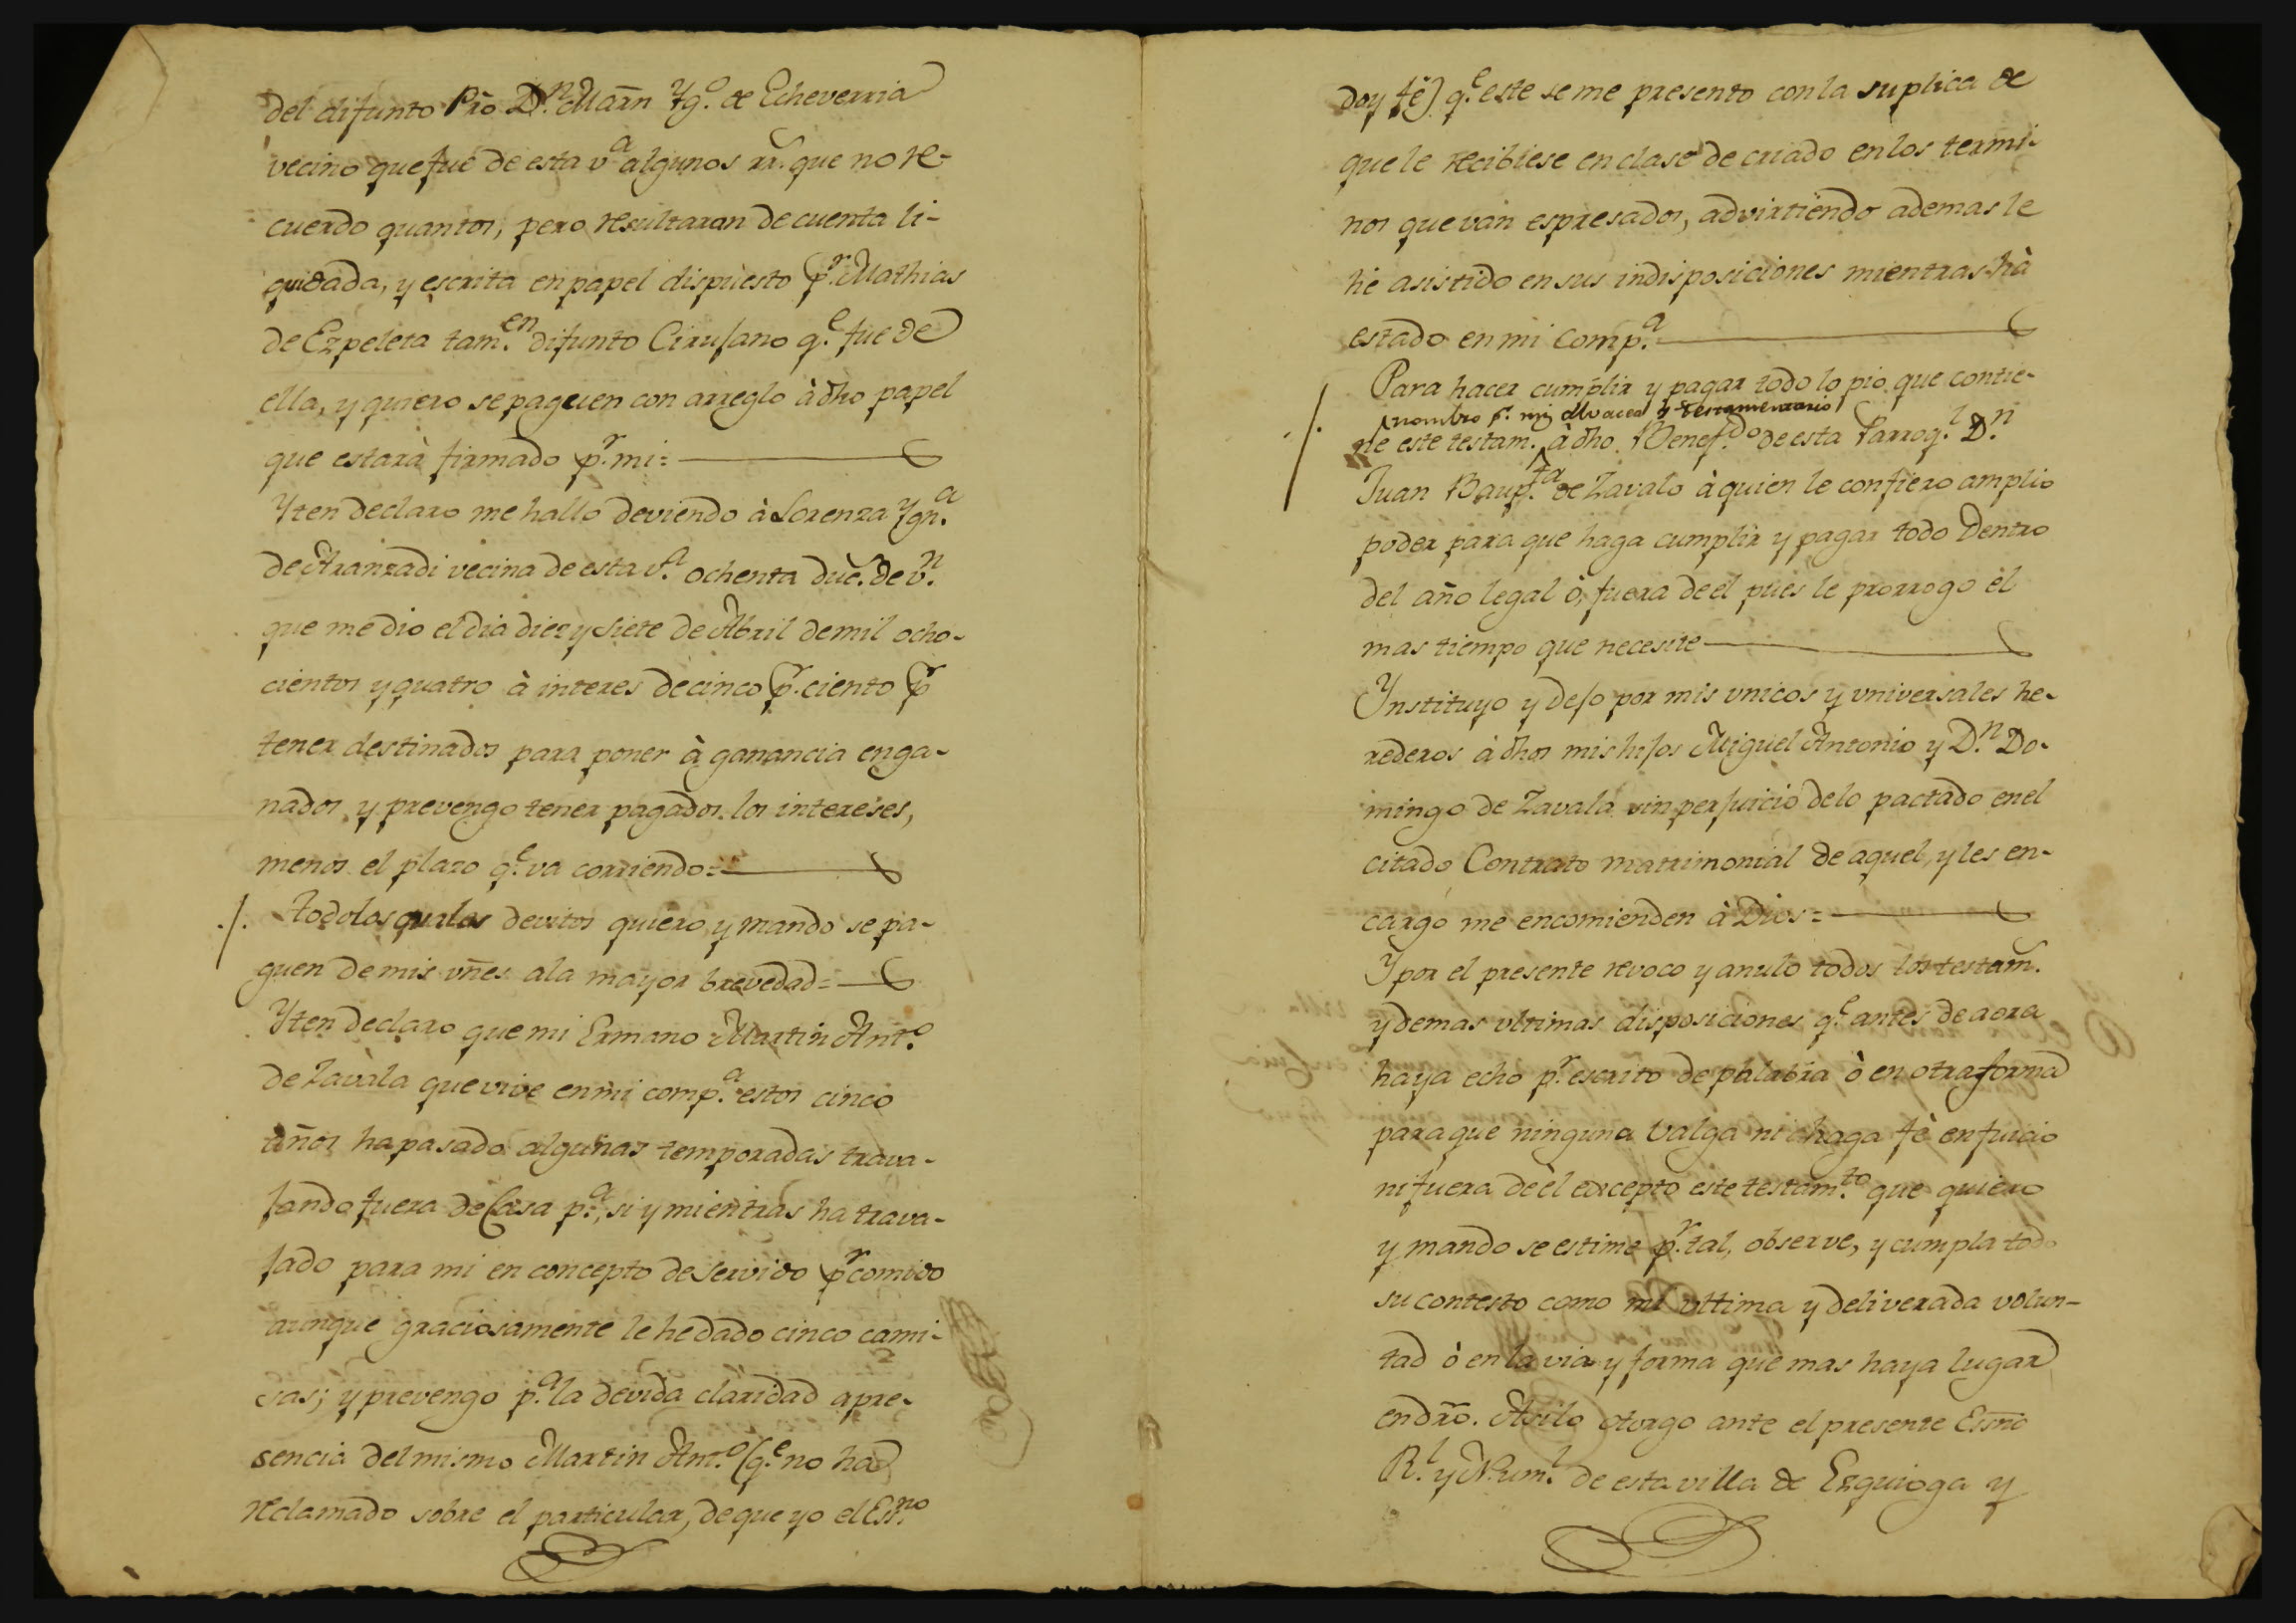 del difunto Pro. D.n Marn Yg.o de Echeverria
vecino que fué de esta v.a algunos rr.s que no re-
cuerdo quantos, pero resultaran de cuenta li-
quidada, y escrita en papel dispuesto p.r Mathias
de Ezpeleta tam.en difunto Cirujano q.e fue de
ella, y quiero se paguen con arreglo à dho papel
que estarà firmado p.r mi=
Yten declaro me hallo deviendo à Lorenza Ygn.a
de Aranzadi vecina de esta v.a ochenta duc.s de v.n
que me dio el dia diez y siete de Abril de mil ocho-
cientos y quatro à interes de cinco p.r ciento p.r
tener destinados para poner à ganancia en ga-
nados, y prevengo tener pagados los intereses,
menos el plazo q.e va corriendo=
./. Todo los quales devitos quiero, y mando se pa-
guen de mis vñes ala mayor brevedad=
Yten declaro que mi Ermano Martin Ant.o
de Zavala que vive en mi comp.a estos cinco
años ha pasado algunas temporadas trava-
jando fuera de Casa p.a si y mientras ha trava-
jado para mi en concepto de servido p.r comido
aunque graciosamente le he dado cinco cami-
sas; y prevengo p.a la devida claridad apre-
sencia del mismo Martin Ant.o (q.e no ha
reclamado sobre el particular, de que yo el Es.no
doy fé) q.e este se me presento con la suplica de
que le recibiese en clase de criado en los termi-
nos que van espresados, advirtiendo ademas le
hé asistido en sus indisposiciones mientras hà
estado en mi comp.a
Para hacer cumplir y pagar todo lo pio que contie-
nombro p.r mi Alvacea y testamentario
./. ne este testam.to à dho. Benef.do de esta Parroq.l D.n
Juan Baup.ta de Zavalo à quien le confiero amplio
poder para que haga cumplir y pagar todo dentro
del año legal ò, fuera de el pues le prorrogo el
mas tiempo que necesite
Ynstituyo y dejo por mis vnicos y vniversales he-
rederos à dhos mis hijos Miguel Antonio y D.n Do-
mingo de Zavala sin perjuicio delo pactado en el
citado Contrato matrimonial de aquel, y les en-
cargo me encomienden à Dios=
Y por el presente revoco y anulo todos los testam.s
y demas vltimas disposiciones q.e antes de aora
haya echo p.r escrito de palabra ò en otra forma
para que ninguna valga ni haga fè en juicio
ni fuera de èl excepto este testam.to que quiero
y mando se estime p.r tal, observe, y cumpla todo
su contesto como mi vltima y deliverada volun-
tad ò en la via y forma que mas haya lugar
en dro. Asilo otorgo ante el presente Esno
R.l y Num.l de esta villa de Ezquioga y